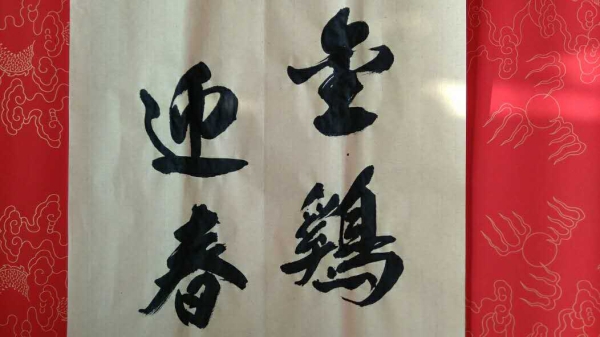 金鷄
迎春